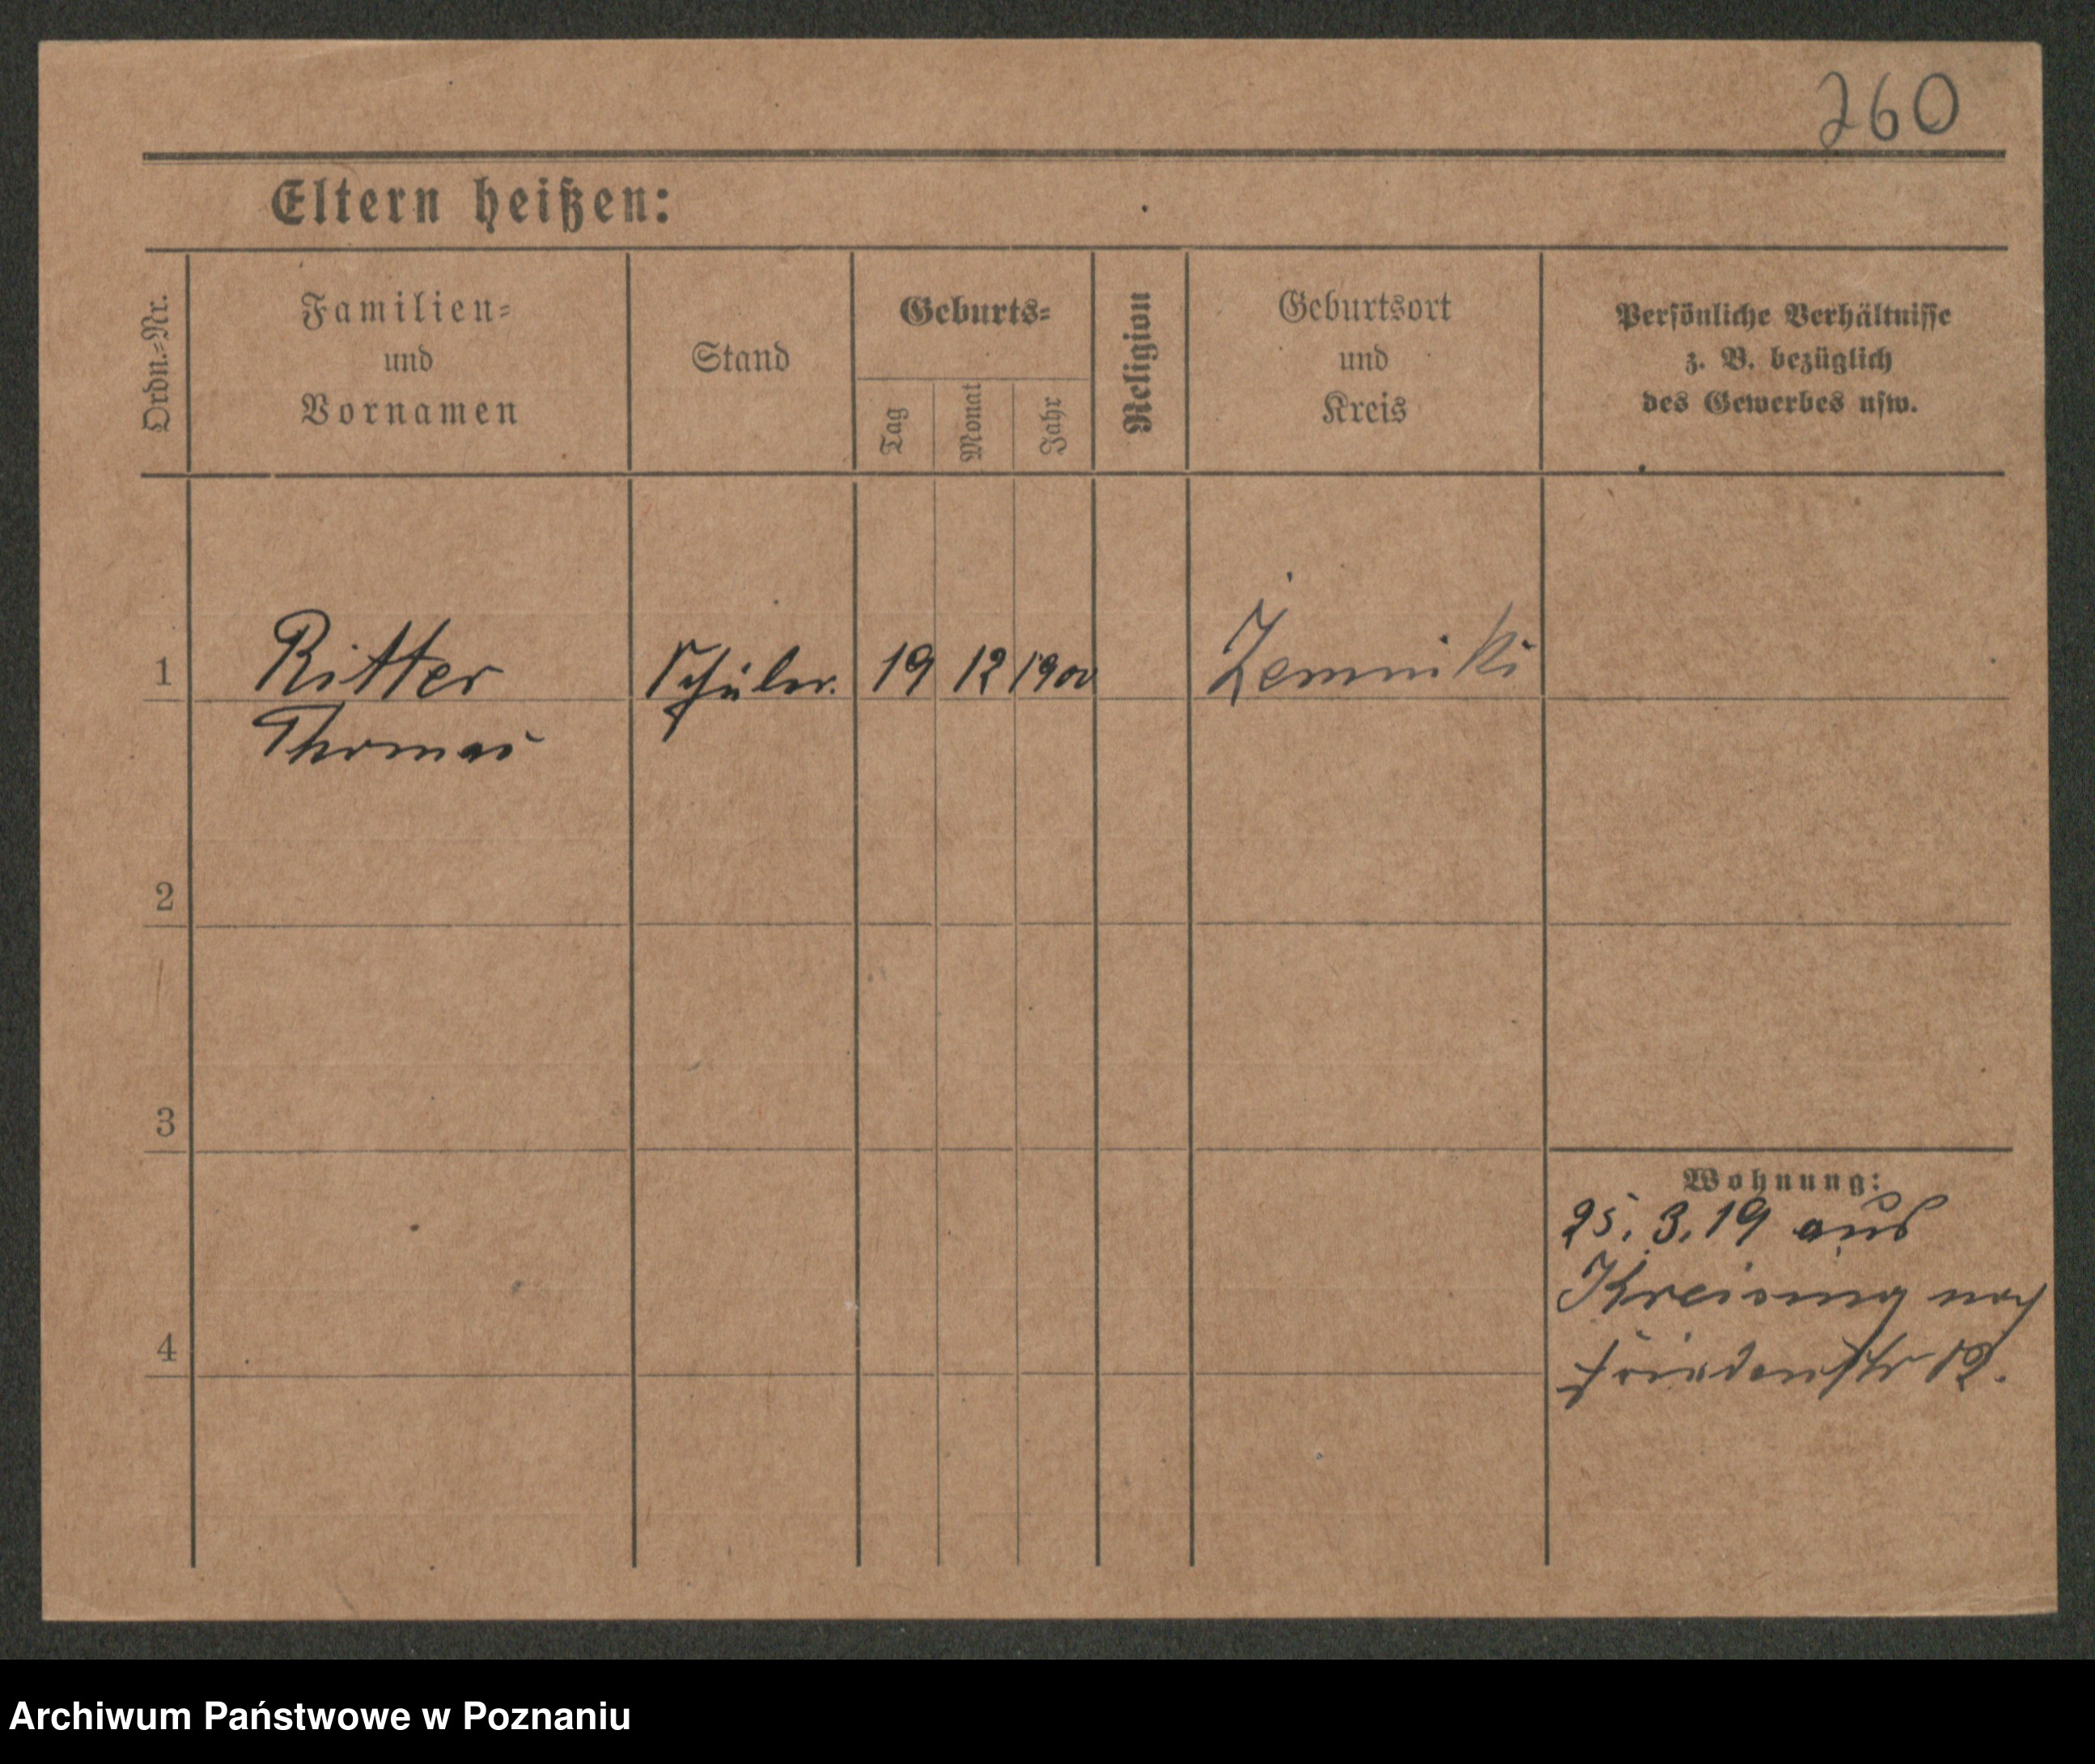 260
Eltern heißen:
Ordn.-Nr.
Familien-
und
Vornamen
Stand
Geburts-
Tag
Monat
Jahr
Religion
Geburtsort
und
Kreis
Persönliche Verhältnisse
z. B. bezüglich
des Gewerbes usw.
1 Ritter Schüler. 19 12 1900 Zemniki
Thomas
2
3
4
Wohnung:
25. 3. 19 aus
Kreising nach
Friedenstr 12.
Archiwum Państwowe w Poznaniu